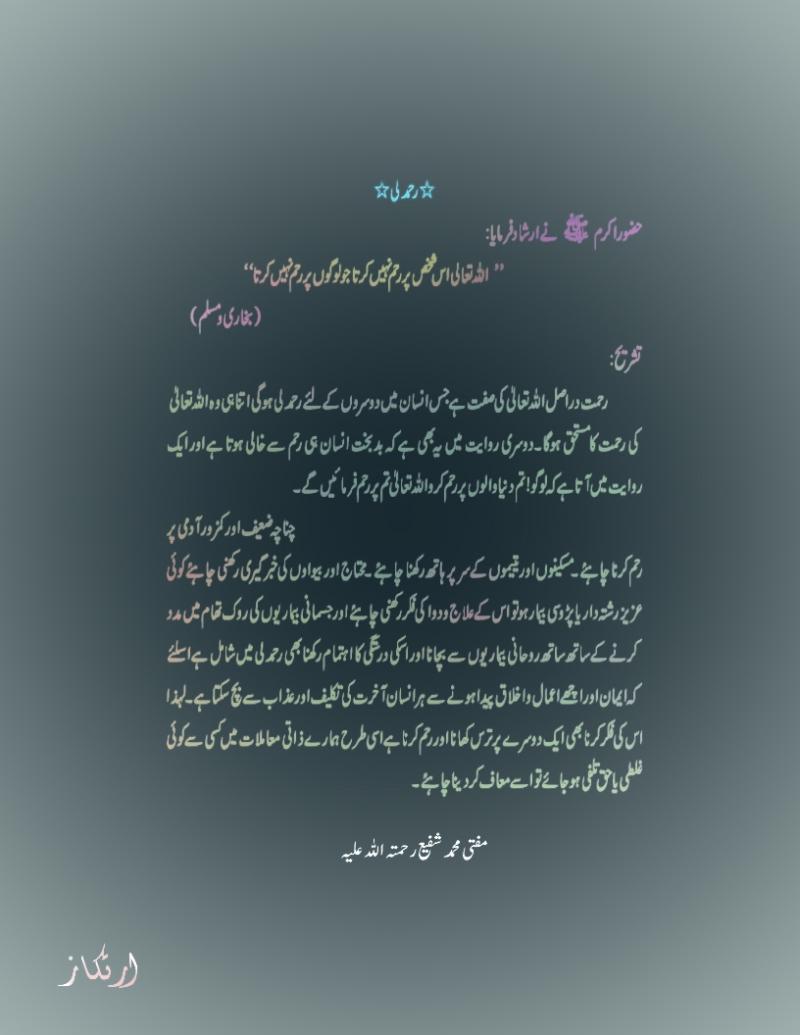 ☆رحمدلی☆
حضور اکرم ﷺ نے ارشاد فرمایا:
” اللہ تعالی اس شخص پر رحم نہیں کرتا جو لوگوں پر رحم نہیں کرتا“
(بخاری و مسلم)
تشریح:
رحمت دراصل اللہ تعالیٰ کی صفت ہے جس انسان میں دوسروں کے لئے رحمدلی ہوگی اتنا ہی وہ اللہ تعالیٰ
کی رحمت کا مستحق ہوگا۔ دوسری روایت میں یہ بھی ہے کہ بدبخت انسان ہی رحم سے خالی ہوتا ہے اور ایک
روایت میں آتا ہے کہ لوگو! تم دنیا والوں پر رحم کرو اللہ تعالیٰ تم پر رحم فرمائیں گے۔
چناچہ ضعیف اور کمزور آدمی پر
رحم کرنا چاہئے۔ مسکینوں اور یتیموں کے سر پر ہاتھ رکھنا چاہئے۔ محتاج اور بیواوں کی خبر گیری رکھنی چاہئے کوئی
عزیز رشتہ دار یا پڑوسی بیمار ہو تو اس کے علاج و دوا کی فکر رکھنی چاہئے اور جسمانی بیماریوں کی روک تھام میں مدد
کرنے کے ساتھ ساتھ روحانی بیماریوں سے بچانا اور اسکی درستگی کا اہتمام رکھنا بھی رحمدلی میں شامل ہے اسلئے
کہ ایمان اور اچھے اعمال و اخلاق پیدا ہونے سے ہر انسان آخرت کی تکلیف اور عذاب سے بچ سکتا ہے۔ لہذا
اس کی فکر کرنا بھی ایک دوسرے پر ترس کھانا اور رحم کرنا ہے اسی طرح ہمارے ذاتی معاملات میں کسی سے کوئی
غلطی یا حق تلفی ہو جائے تو اسے معاف کر دینا چاہئے۔
مفتی محمد شفیع رحمتہ اللہ علیہ
ارتکاز